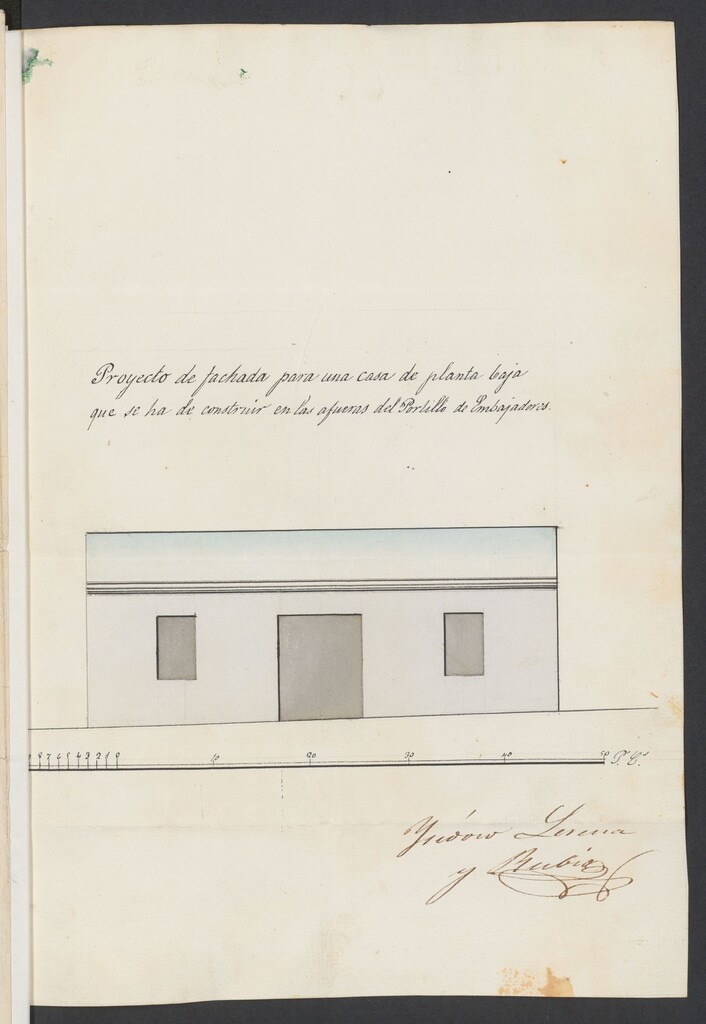 Proyecto de fachada para una casa de planta baja
que se ha de construir en las afueras del Portillo de Embajadores.
9 8 7 6 5 4 3 2 1 0 10 20 30 40 50 P. C.s
Ysidoro Lerena
y Rubia